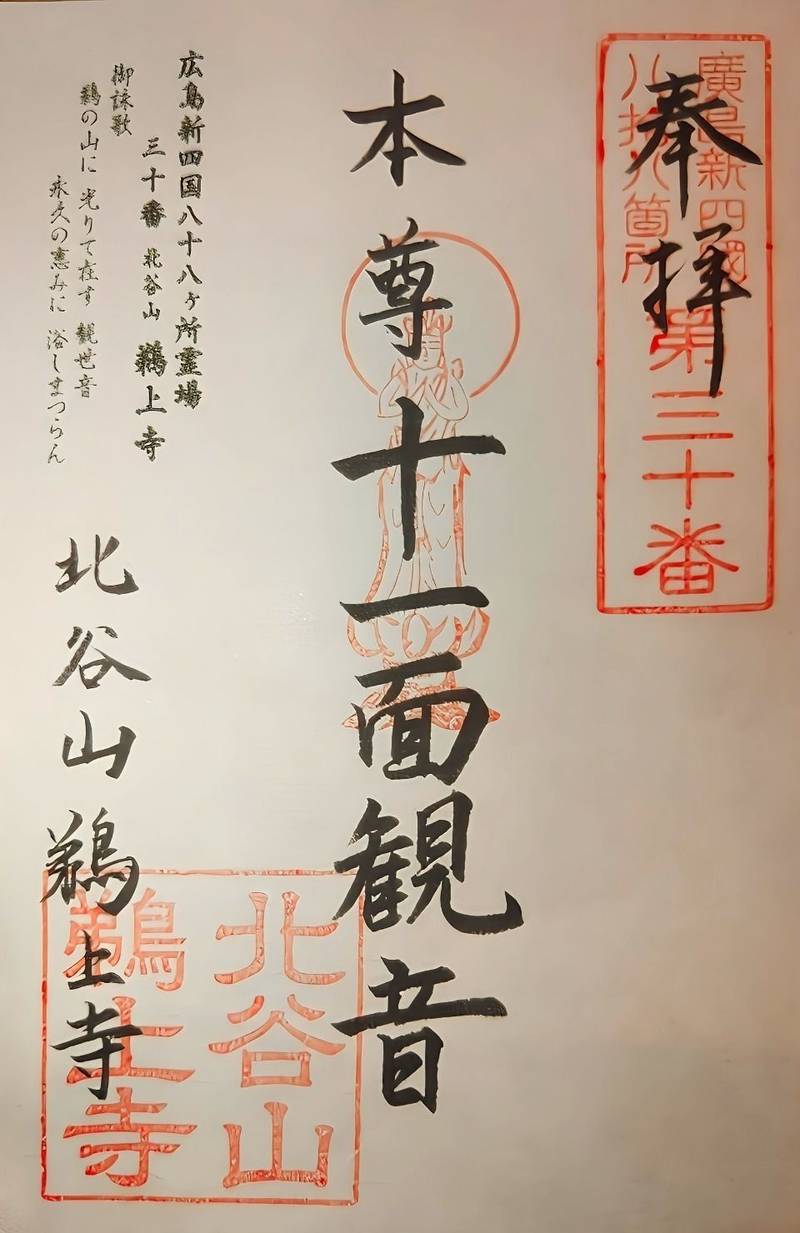 奉拝
廣島新四國
八拾八箇所
第三十番
本尊十一面観音
広島新四国八十八ヶ所霊場
三十番 北谷山 鵜上寺
御詠歌
鵜の山に 光りて在す 観世音
永久の恵みに 浴しまつらん
北谷山 鵜上寺
北谷山
鵜上寺